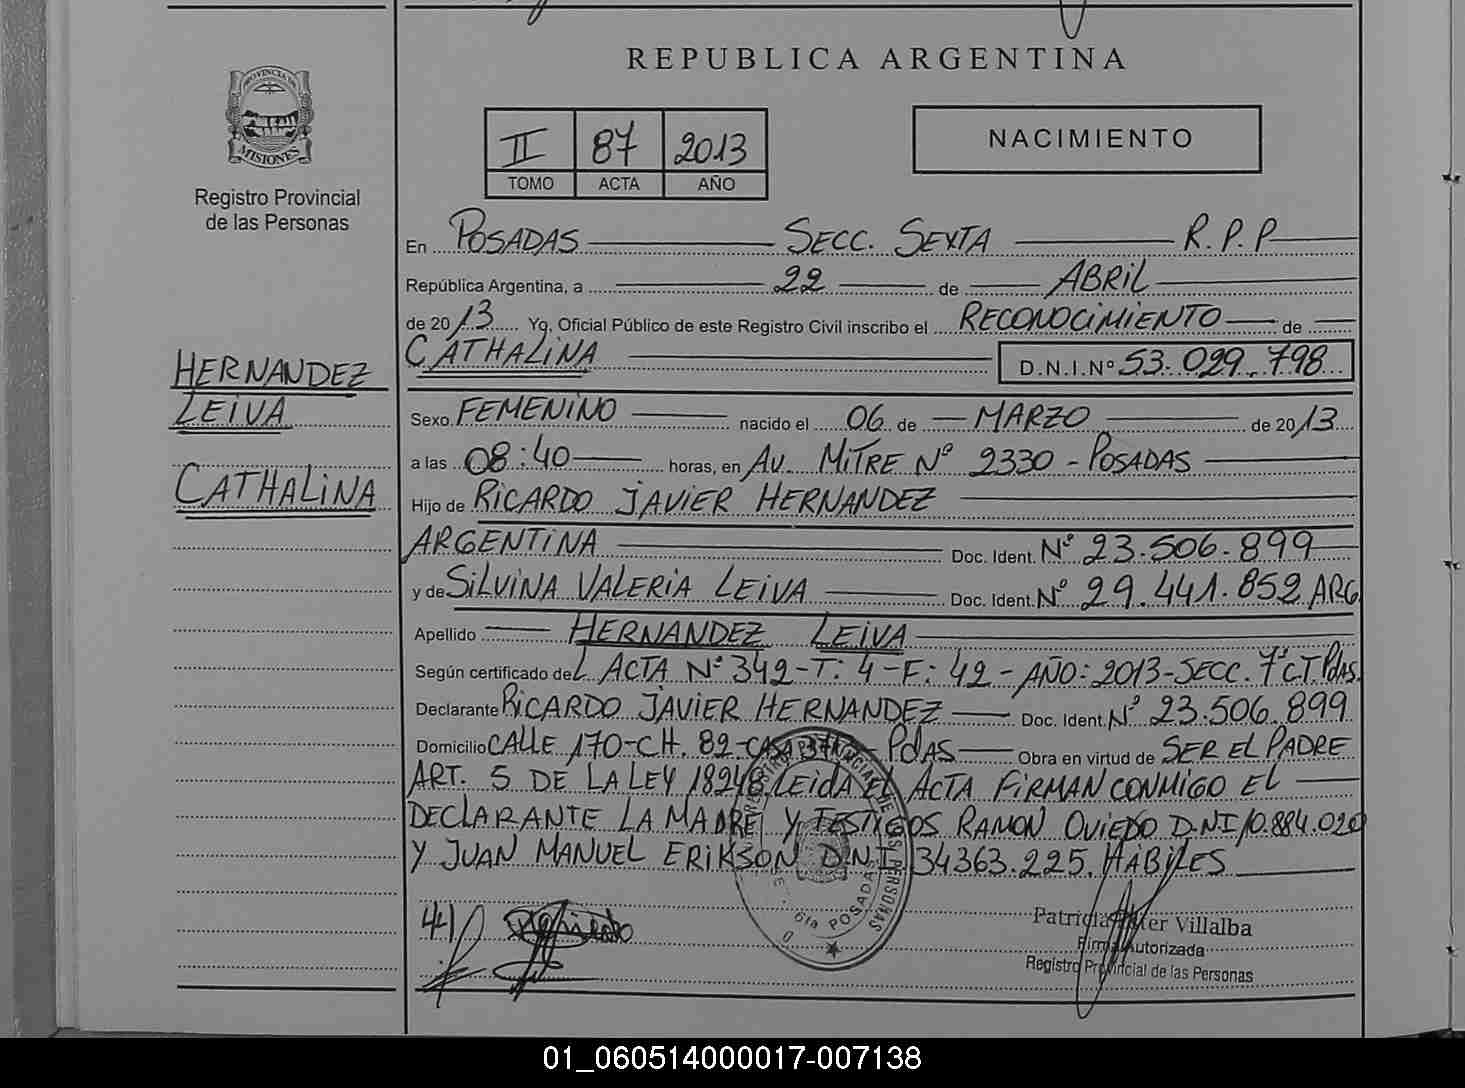 REPUBLICA ARGENTINA
PROVINCIA DE
MISIONES
Registro Provincial
de las Personas
II 87 2013
TOMO ACTA AÑO
NACIMIENTO
En POSADAS SECC. SEXTA R.P.P
República Argentina, a 22 de ABRIL
de 2013 Yo, Oficial Público de este Registro Civil inscribo el RECONOCIMIENTO de
CATHALINA D.N.I.Nº 53.029.798
HERNANDEZ
LEIVA
CATHALINA
Sexo FEMENINO nacido el 06 de MARZO de 2013
a las 08:40 horas, en AV. MITRE Nº 2330 - POSADAS
Hijo de RICARDO JAVIER HERNANDEZ
ARGENTINA Doc. Ident. Nº 23.506.899
y de SILVINA VALERIA LEIVA Doc. Ident. Nº 29.441.852 ARG.
Apellido HERNANDEZ LEIVA
Según certificado deL ACTA Nº 342-T: 4-F: 42-AÑO: 2013-SECC. 7ª C.T. Pdas.
Declarante RICARDO JAVIER HERNANDEZ Doc. Ident. Nº 23.506.899
Domicilio CALLE 170-CH. 82-CASA - PdAS Obra en virtud de SER EL PADRE
ART. 5 DE LA LEY 18248. LEIDA EL ACTA FIRMAN CONMIGO EL
DECLARANTE LA MADRE Y TESTIGOS RAMON OVIEDO D.N.I 10.884.020
Y JUAN MANUEL ERIKSON D.N.I 34363.225. HABILES
REGISTRO PROVINCIAL DE LAS PERSONAS
6ta POSADAS
Patricia Villalba
Firma Autorizada
Registro Provincial de las Personas
01_060514000017-007138